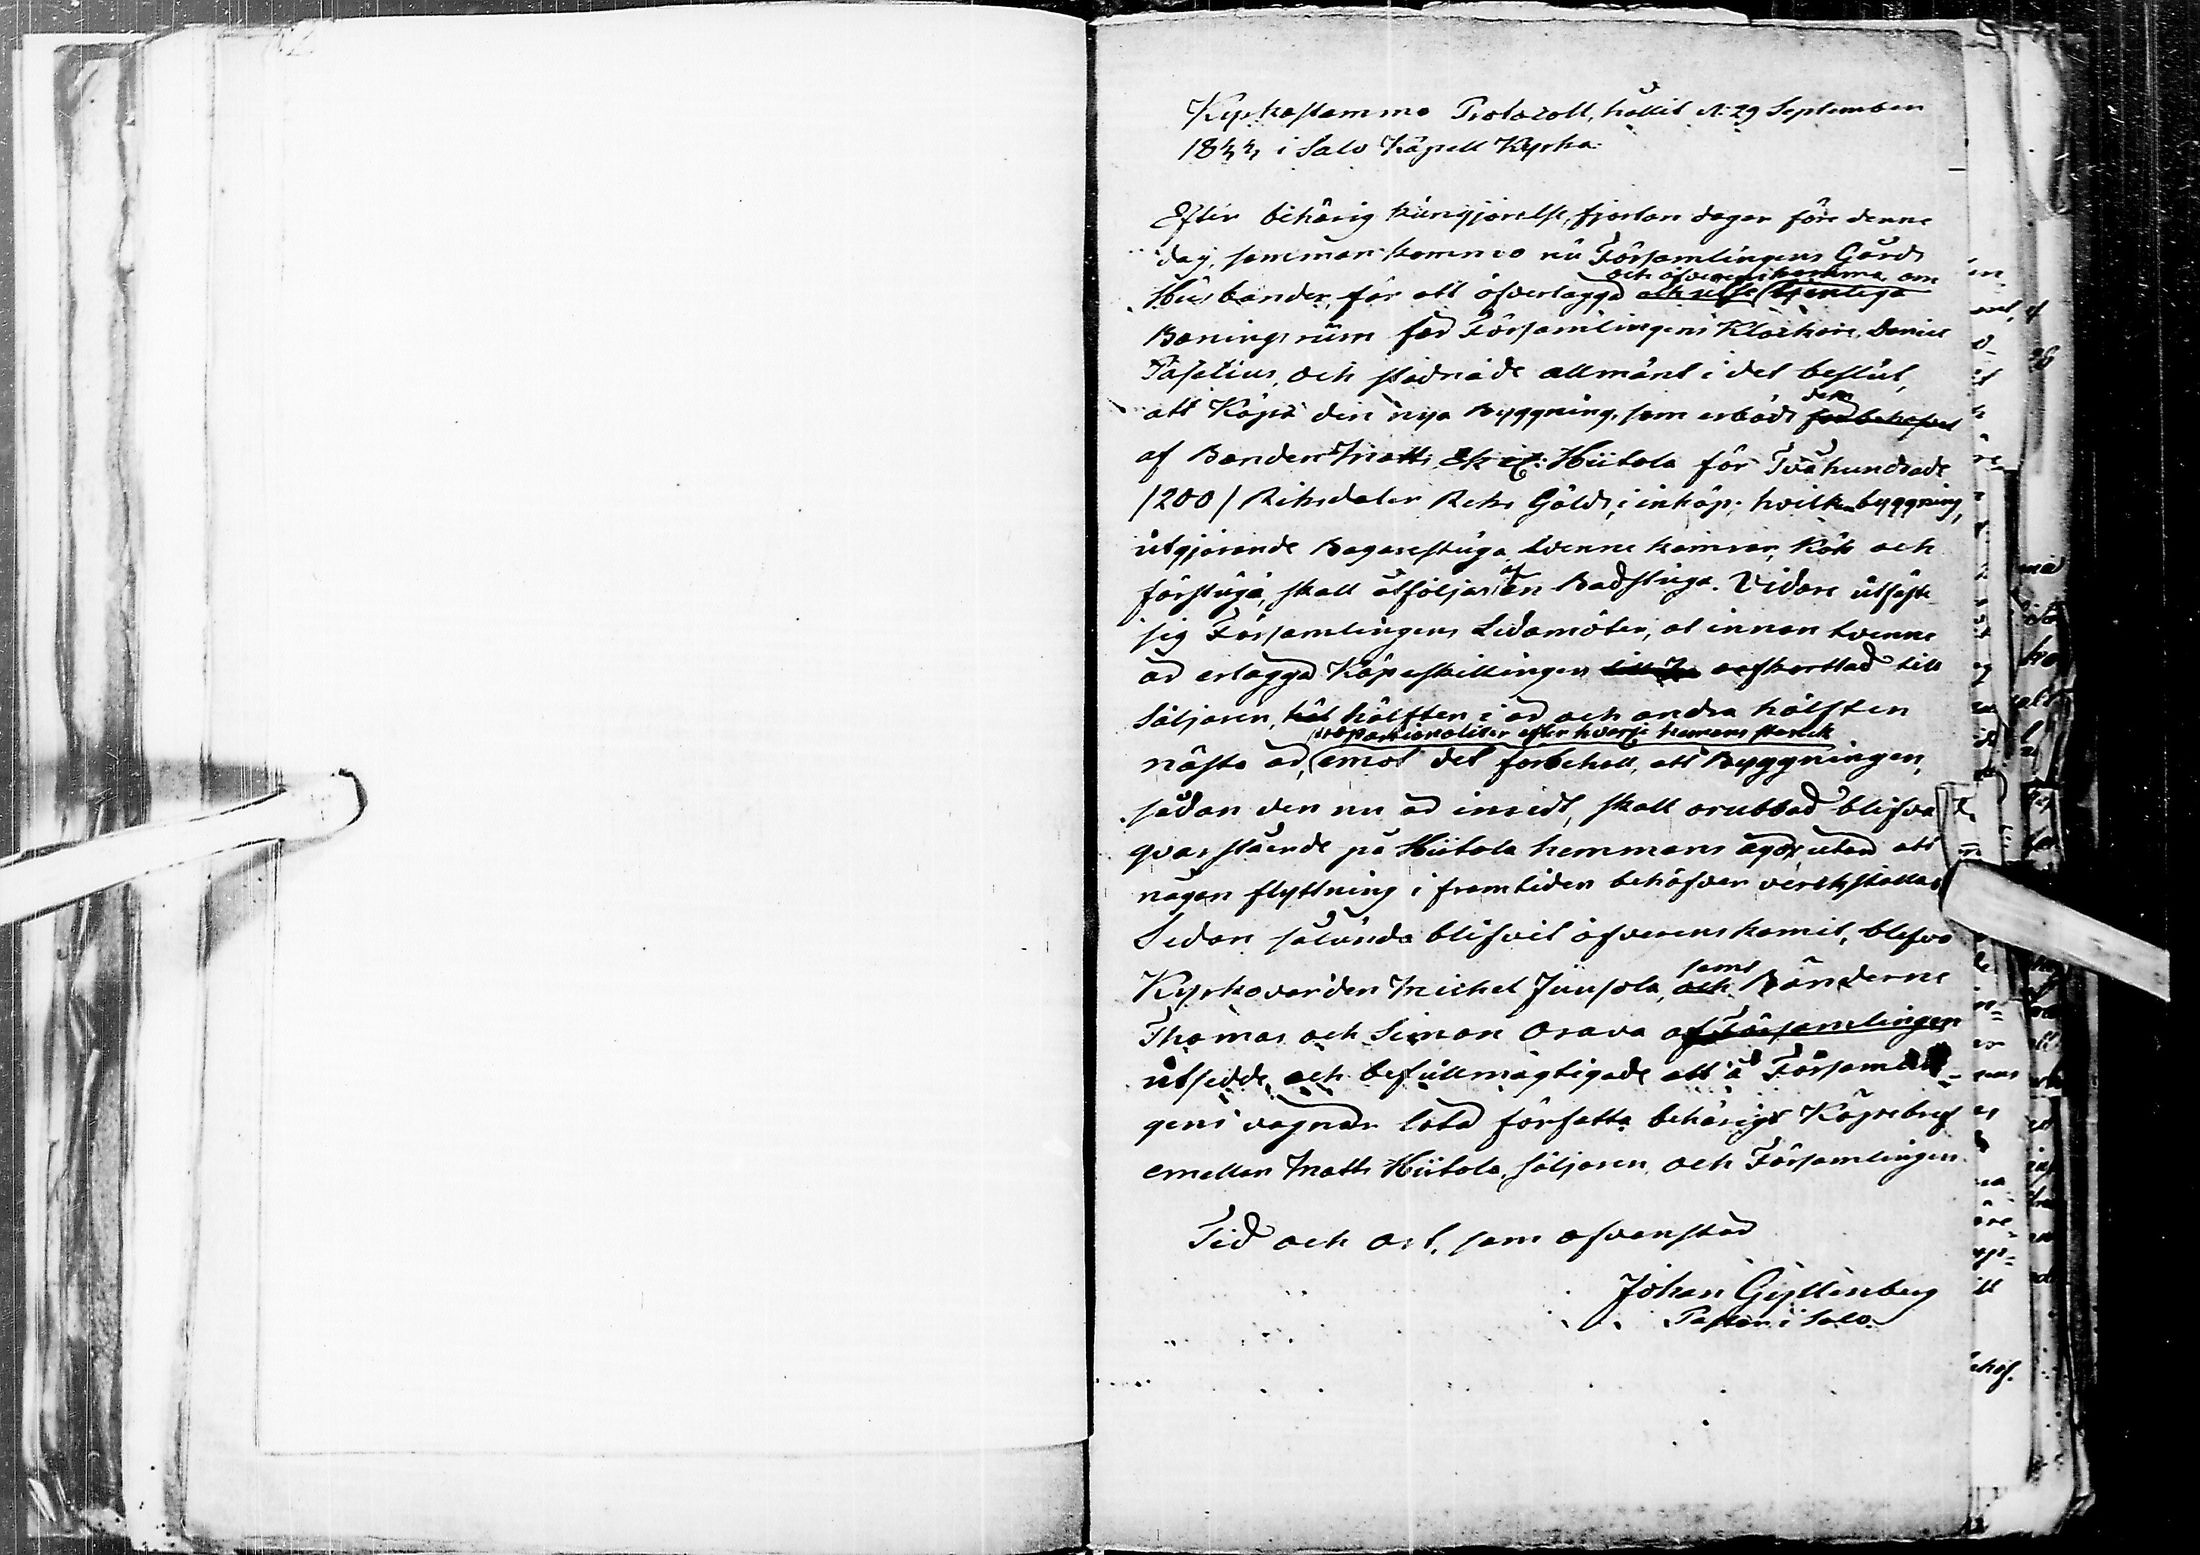 Kyrkostämmo Protocoll, hållit d: 29 September
1844 i Salo Kapell Kyrka.
Efter behörig kungjörelse, fjorton dagar före denne
dag, sammankommo nu Församlingens Gårds
och öfverenskomma om
Husbönder, för att öfverlägga och utse tjenliga
Boningsrum för Församlingens Klockare Daniel
och stadnade allmänt i det beslut,
dem
att Köpa den nya Byggning, som erböds för behofvet
af Bonden Matts Hiitola för Tvåhundrade
/200/ Riksdaler Riks Gälds, i inköp; hvilken byggning,
utgjörande Bagarestuga tvenne kamrar, Kök och
af
förstuga, skall åtföljas en Badstuga. Vidare utfäste
sig Församlingens Ledamöter, at innan tvenne
år erlägga Köpeskillingen oafkortad till
Säljaren, hälften i år och andra hälften
proportionaliter efter hvarje hemmans storlek
nästa år, emot det förbehåll, att Byggningen,
sådan den nu är inredt, skall orubbad blifva
qvarstående på Hiitola hemmans ägor, utan att
någon flyttning i framtiden behöfver verkställas
Sedan sålunda blifvit öfverenskomit, blefvo
samt
Kyrkovärden Michel Juusola, och Bönderne
Thomas och Simon Orava af Församlingen
utsedde och befullmägtigade att å Församlin-
gens vägnar låta författa behörigt Köpebref
emellan Matts Hiitola, säljaren, och Församlingen.
Tid och Ort, som ofvanstår
Johan Gyllenberg
Pastor i Salo